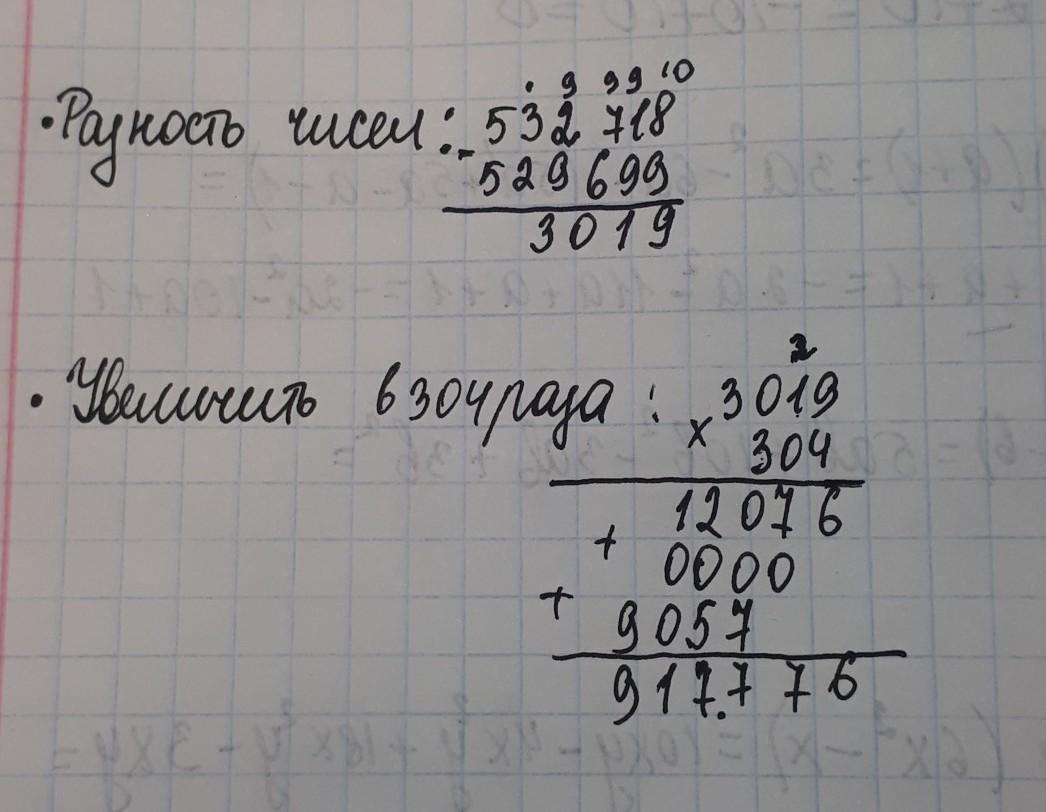 . 9 9 9 10
• Разность чисел: - 532 718
529 699
3019
2
• Увеличить в 304 раза: 3019
x 304
12076
+ 0000
+ 9057
917.776